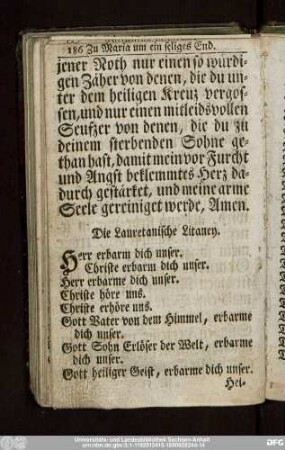 186 Zu Maria um ein seliges End.
jener Noth nur einen so würdi-
gen Zäher von denen, die du un-
ter dem heiligen Kreuz vergos-
sen, und nur einen mitleidsvollen
Seufzer von denen, die du zu
deinem sterbenden Sohne ge-
than hast, damit mein vor Furcht
und Angst beklemmtes Herz da-
durch gestärket, und meine arme
Seele gereiniget werde, Amen.
Die Lauretanische Litaney.
Herr erbarm dich unser.
Christe erbarm dich unser.
Herr erbarme dich unser.
Christe höre uns.
Christe erhöre uns.
Gott Vater von dem Himmel, erbarme
dich unser.
Gott Sohn Erlöser der Welt, erbarme
dich unser.
Gott heiliger Geist, erbarme dich unser.
Hei-
Universitäts- und Landesbibliothek Sachsen-Anhalt